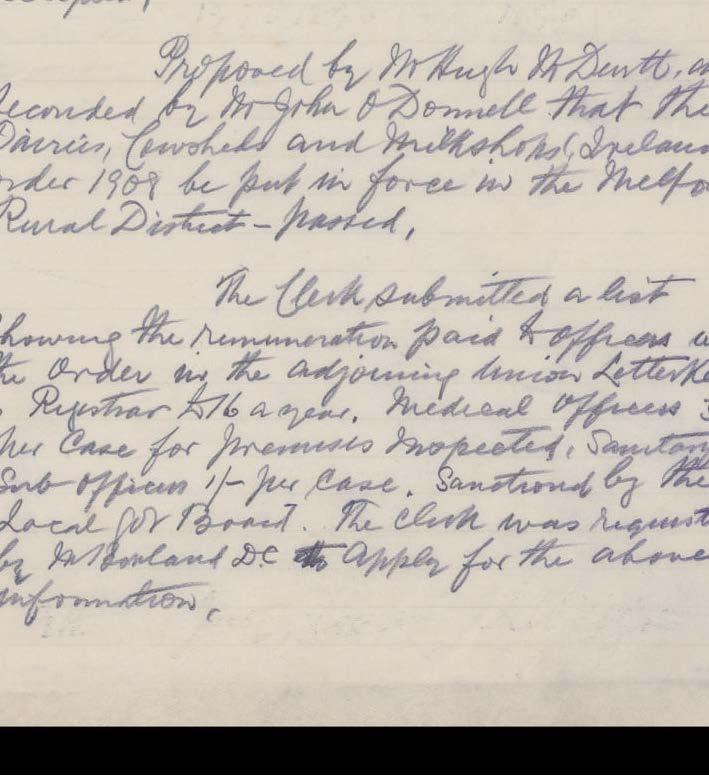 Proposed by Mr Hugh McDevitt, an
Seconded by Mr John O Donnell that the
Dairies, Cowsheds and Milkshops (Irelan
order 1908 be put in force in the Melfo
Rural District - passed,
The Clerk submitted a list
showing the remuneration paid to officers u
the Order in the adjoining Union Letterke
Registrar £16 a year. Medical Officers 3
per Case for premises Inspected, Sanitary
Sub officers 1/- per case. Sanctioned by the
Local Gov Board. The Clerk was request
by Mr Bonland D.C to apply for the above
information,